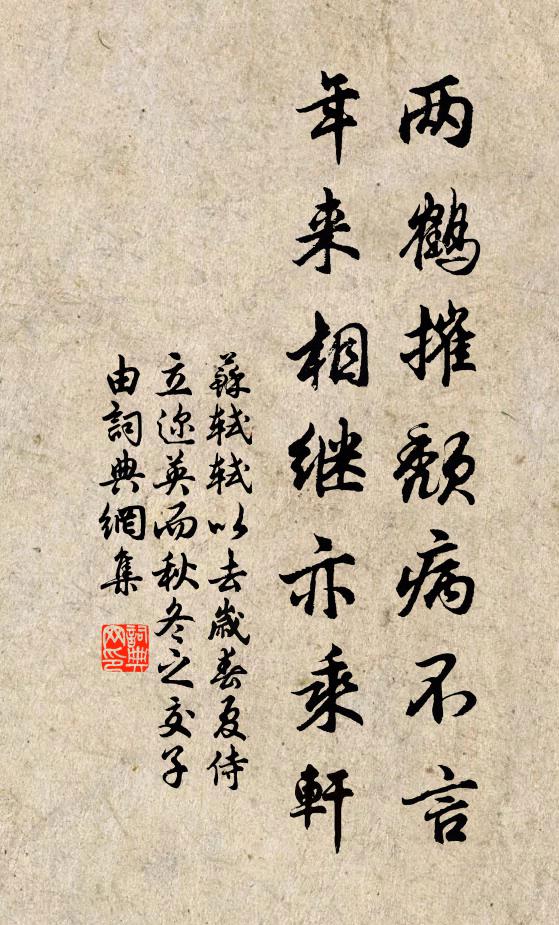 两鹤摧颓病不言
年来相继亦乘轩
蘇軾軾以去歲春夏侍
立迩英而秋冬之交子
由詞典網集
詞典网印